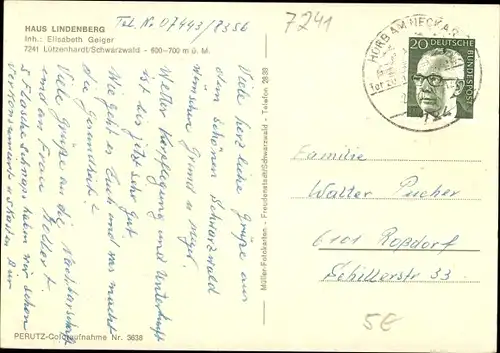 HAUS LINDENBERG
Inh.: Elisabeth Geiger
7241 Lützenhardt/Schwarzwald - 600-700 m ü. M.
Tel. Nr 07443/8356
7241
Viele herzliche Grüße aus
dem schönen Schwarzwald
wünschen Grund u
Wetter Verpflegung und Unterkunft
ist bis jetzt sehr gut
Wie geht es Euch und was macht
die Gesundheit?
Viele Grüße an die
und an Frau
5 Flasche Schnaps haben wir schon
u Kasten Bier
Müller-Fotokarten - Freudenstadt/Schwarzwald - Telefon 3638
PERUTZ-Coloraufnahme Nr. 3638
HORB AM NECKAR
724
20
DEUTSCHE
BUNDESPOST
Familie
Walter Pucher
6101 Roßdorf
Schillerstr 33
5€